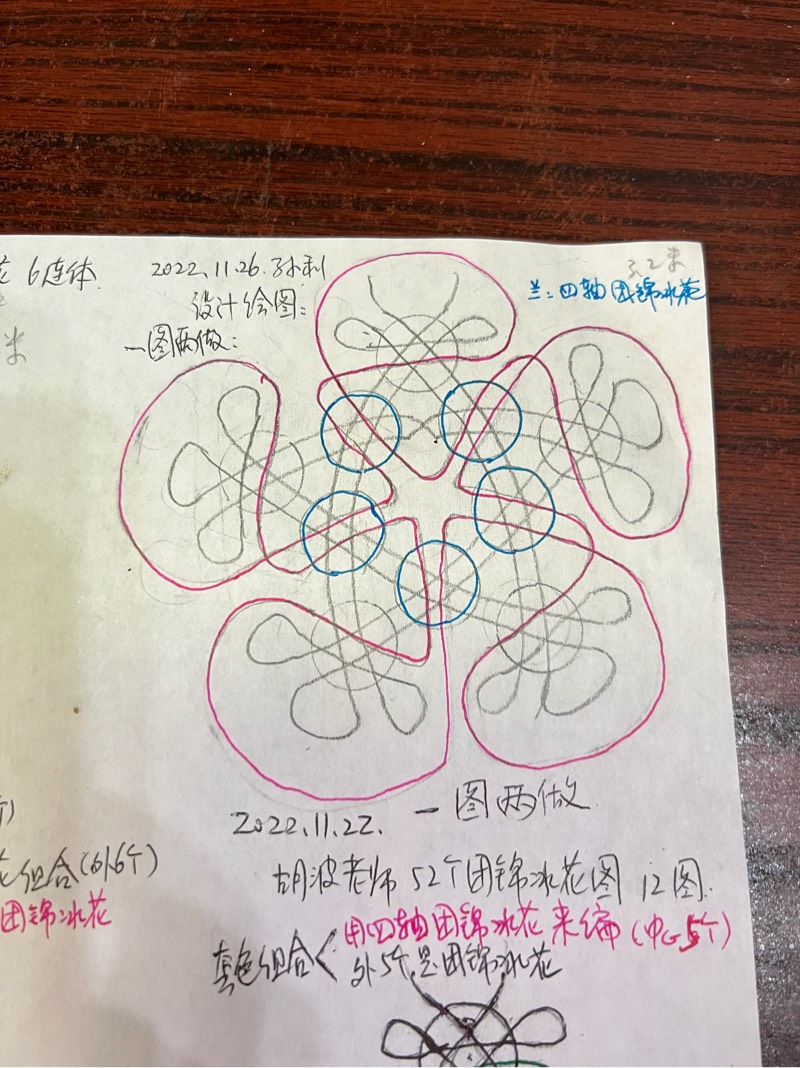 花 6连体
2022.11.26.孙利
设计绘图:
一图两做:
3.2米
兰:四轴团锦冰花
米
2022.11.22. 一图两做
个)
花组合(外6个)
胡波老师 52个团锦冰花图 12图.
团锦冰花
用四轴团锦冰花来编(中心5个)
组合<
外5个是团锦冰花